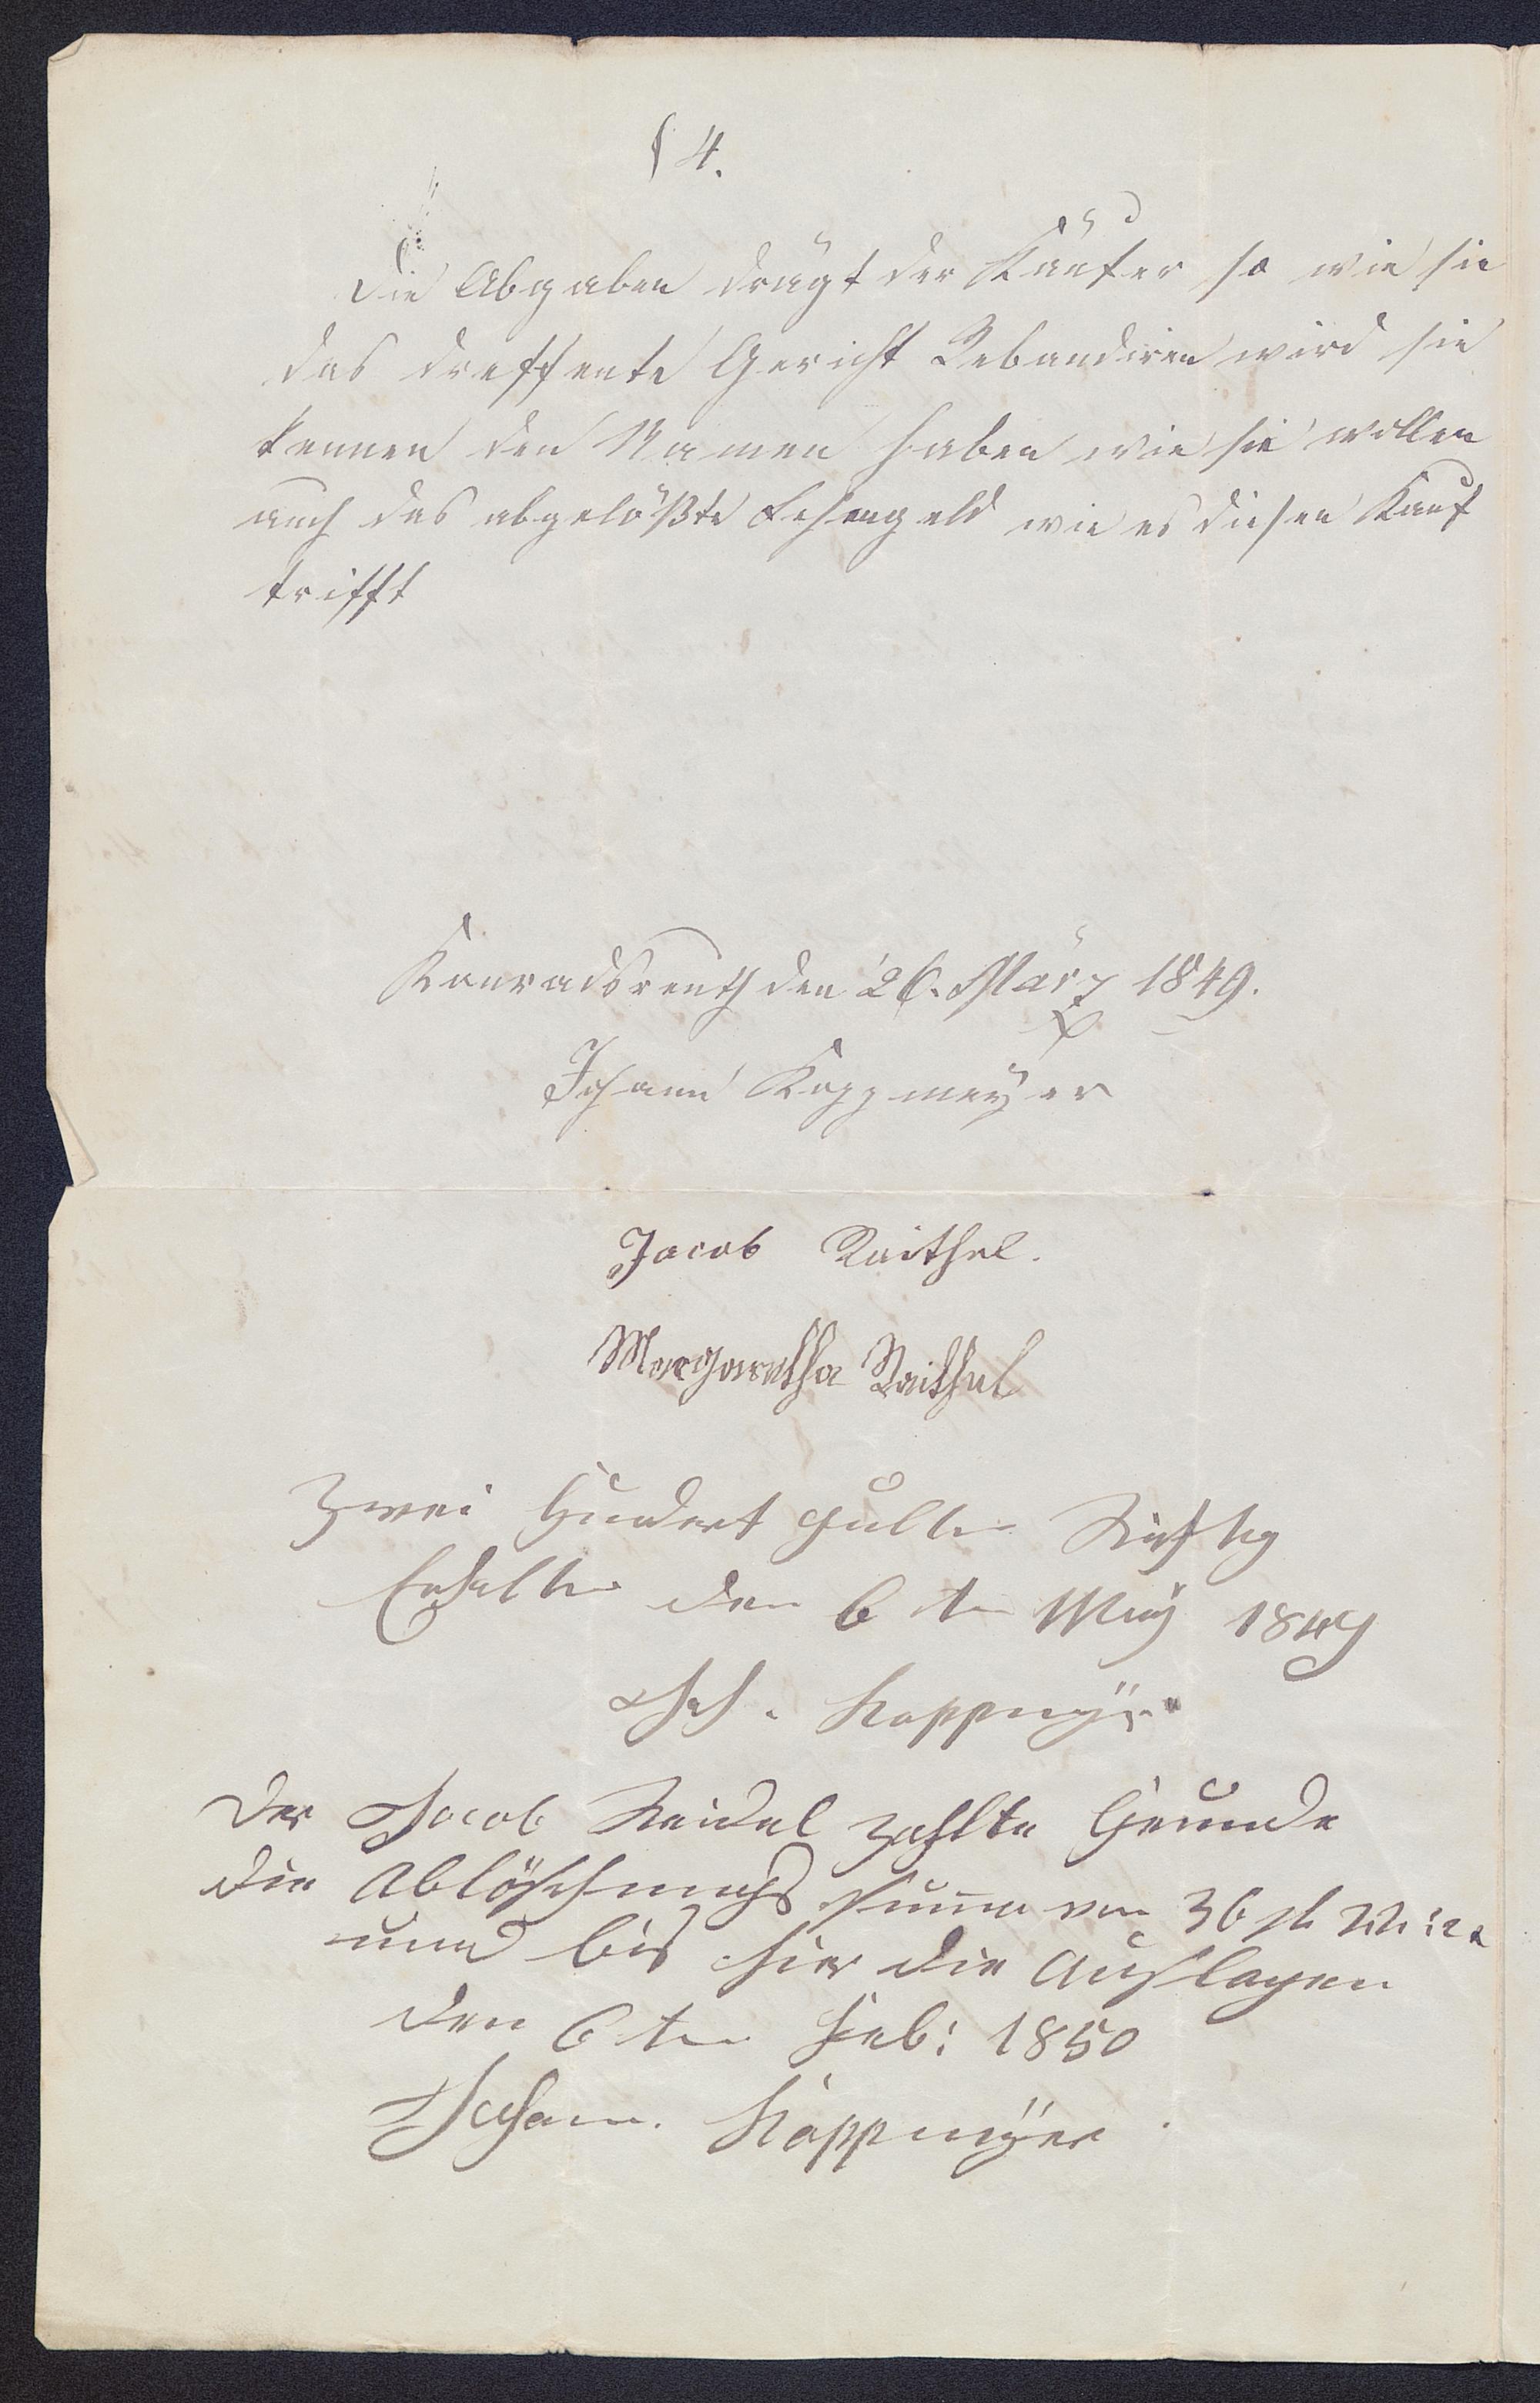 § 4.
Die Abgaben drägt der Käufer so wie sie
das dreffente Gericht Rebandiren wird sie
kennen den Namen haben wie sie wollen
auch das abgelößte Lehengeld wie es diesen Kauf
trifft
Konradsreuth den 26. März 1849.
Johann Koppmeyer
Jacob Raithel.
Margaretha Raithel
Zwei Hundert Gulten Richtig
Erhalten den 6 ten May 1849
Joh. Koppmeyer
Der Jacob Reidel zahlte Heunde
die Ablöschungs Summe von 36 fl
und bis hier die Auslagen
den 6 ten Feb: 1850
Johann. Koppmeyer